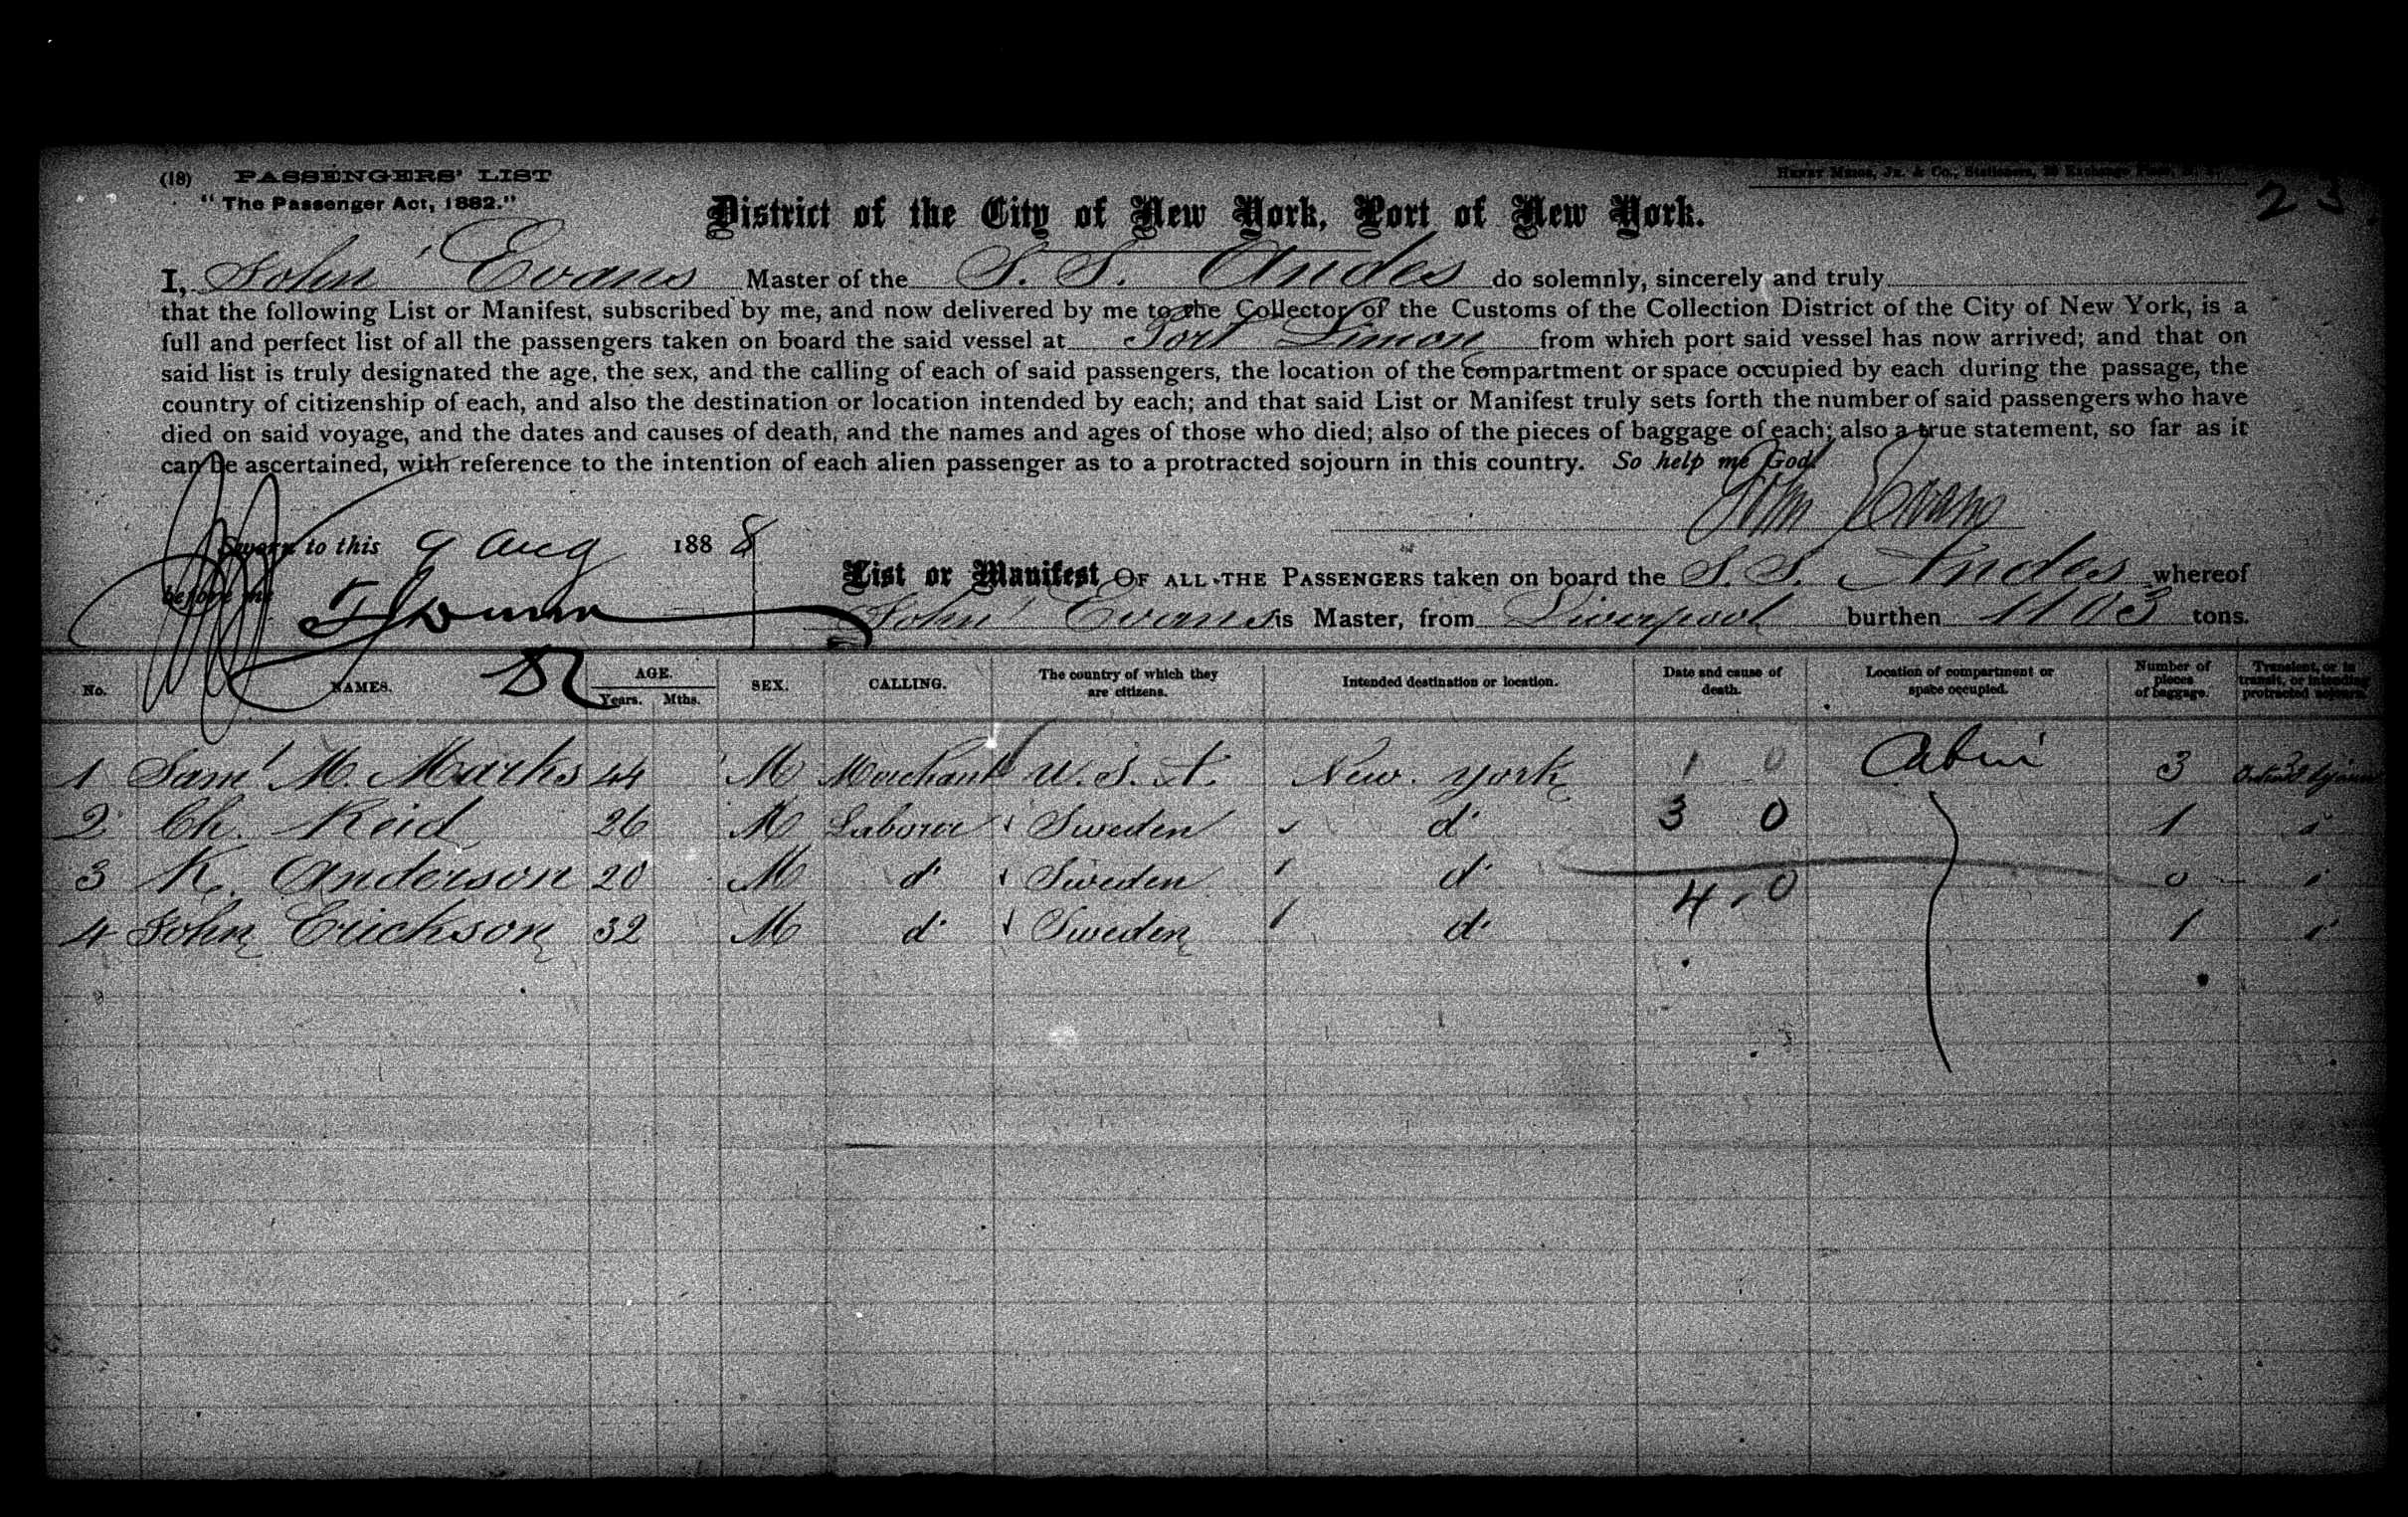 (18) PASSENGERS' LIST
"The Passenger Act, 1882."
Henry Meigs, Jr. & Co., Stationers, Exchange Place,
23
District of the City of New York, Port of New York.
I, John Evans Master of the S. S. Andes do solemnly, sincerely and truly
that the following List or Manifest, subscribed by me, and now delivered by me to the Collector of the Customs of the Collection District of the City of New York, is a
full and perfect list of all the passengers taken on board the said vessel at Port Limon from which port said vessel has now arrived; and that on
said list is truly designated the age, the sex, and the calling of each of said passengers, the location of the compartment or space occupied by each during the passage, the
country of citizenship of each, and also the destination or location intended by each; and that said List or Manifest truly sets forth the number of said passengers who have
died on said voyage, and the dates and causes of death, and the names and ages of those who died; also of the pieces of baggage of each; also a true statement, so far as it
can be ascertained, with reference to the intention of each alien passenger as to a protracted sojourn in this country. So help me God.
John Evans
Sworn to this 9 Aug 1888
before me
List or Manifest OF ALL THE PASSENGERS taken on board the S. S. Andes whereof
John Evans is Master, from Liverpool burthen 1103 tons.
No. NAMES. AGE. Years. Mths. SEX. CALLING. The country of which they are citizens. Intended destination or location. Date and cause of death. Location of compartment or space occupied. Number of pieces of baggage. Transient, or in transit, or intending protracted sojourn.
1 Saml M. Marks 44 M Merchant U. S. A. New York 1 0 Cabin 3
2 Ch. Reid 26 M Laborer Sweden do 3 0 1 "
3 K. Anderson 20 M do Sweden do 0 "
4 John Erickson 32 M do Sweden do 4 0 1 "